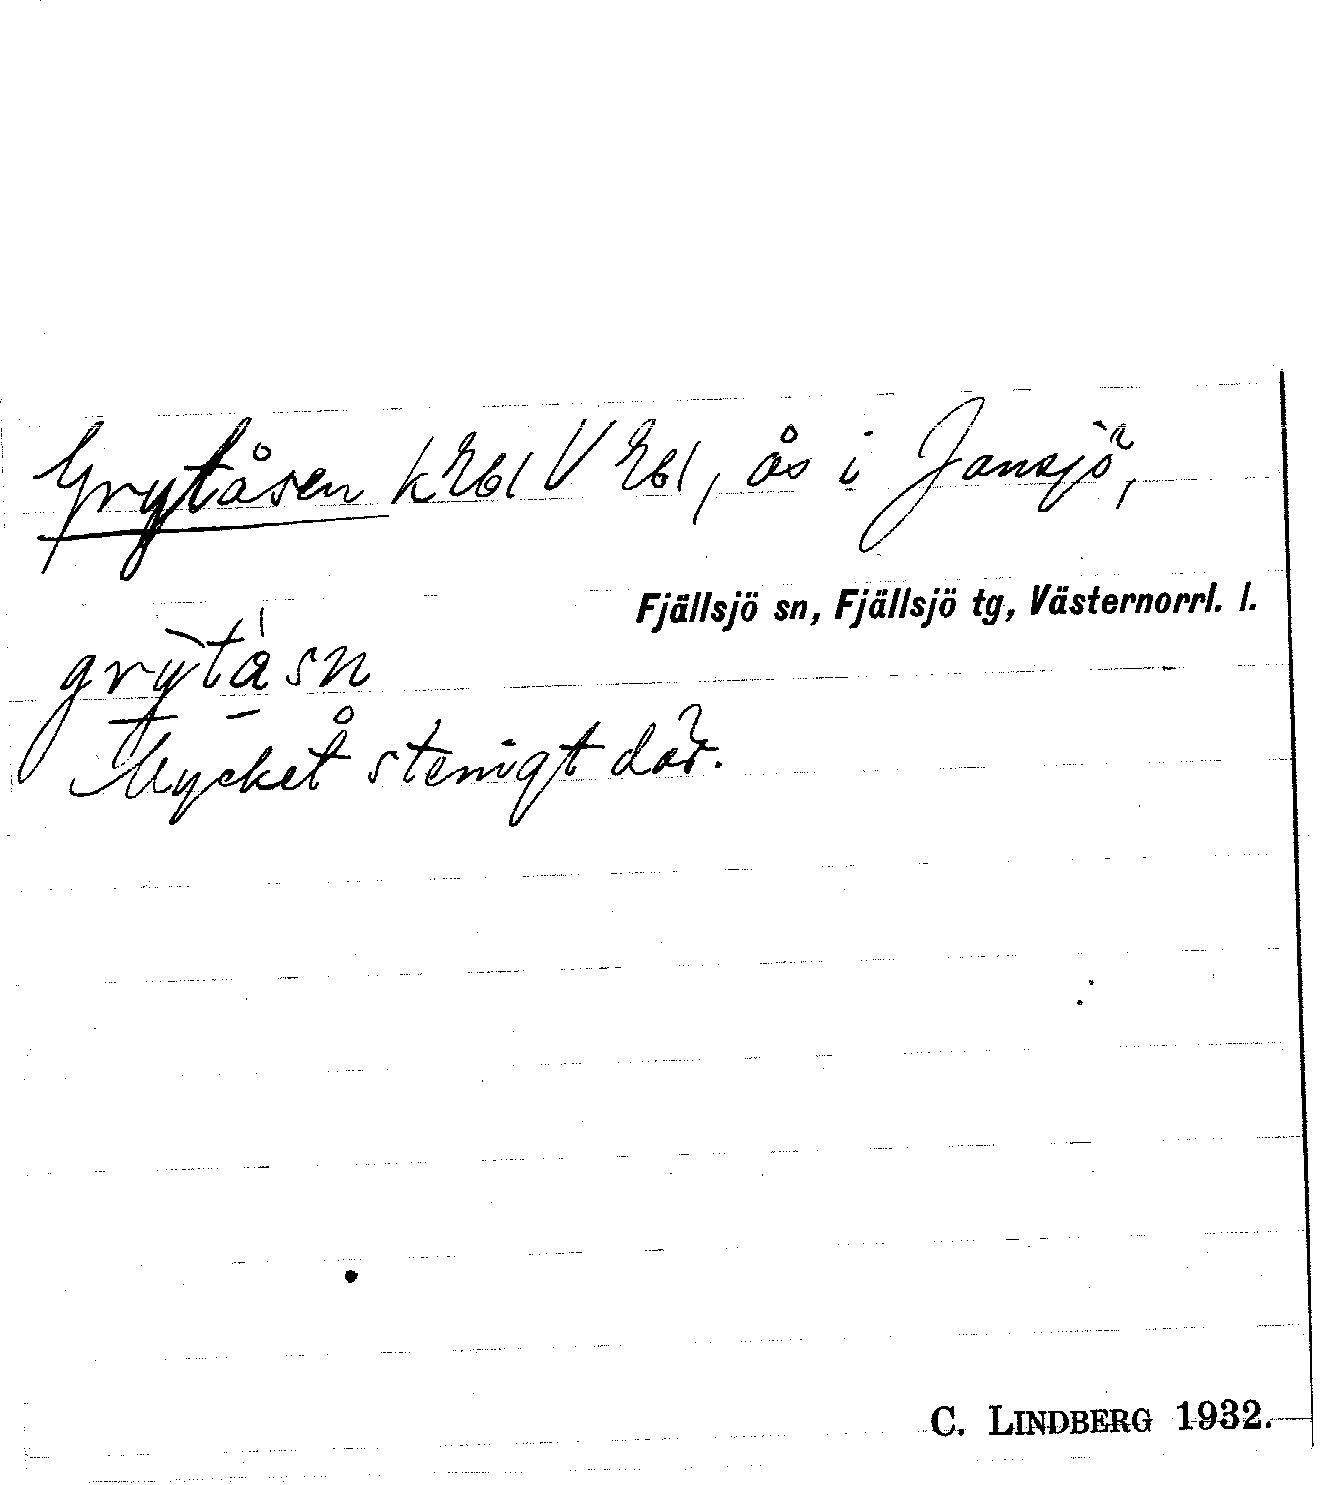 Grytåsen k V , ås i Jansjö,
Fjällsjö sn, Fjällsjö tg, Västernorrl. l.
grỳtåsn
Mycket stenigt där.
C. LINDBERG 1932.